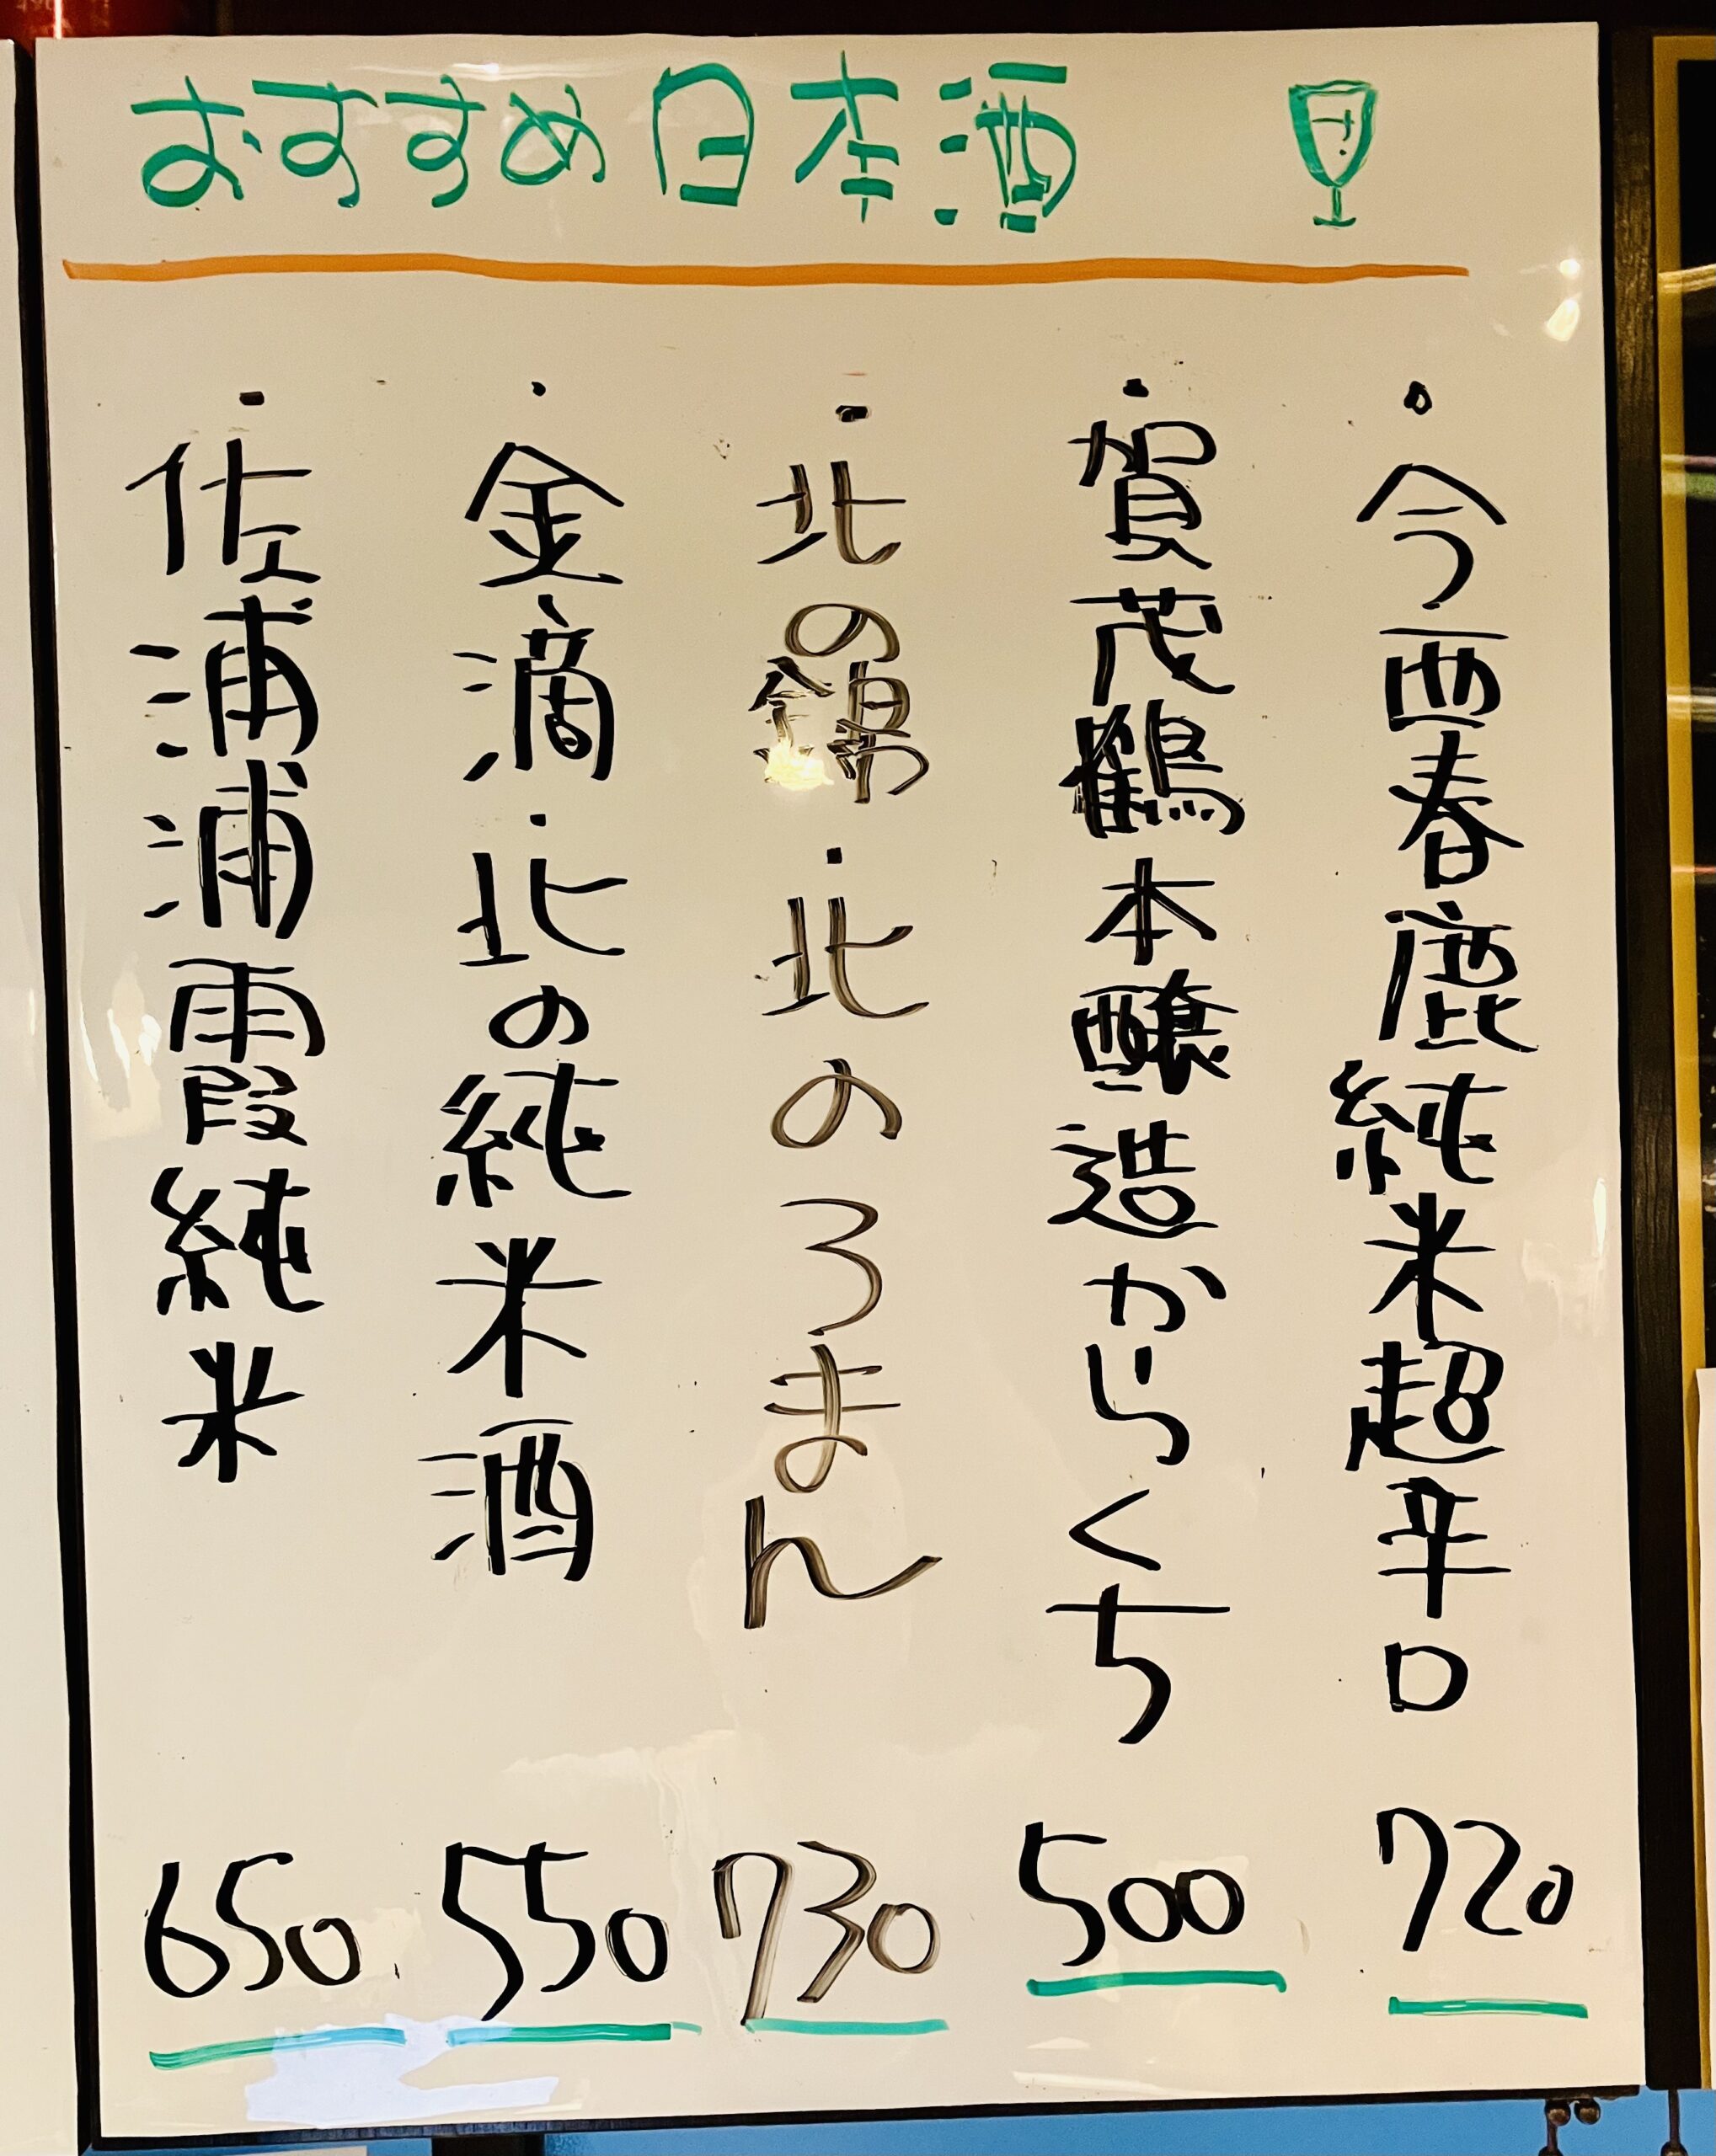 おすすめ日本酒
・今西春鹿純米超辛口 720
・賀茂鶴本醸造からくち 500
・北の錦・北のろまん 730
・金滴・北の純米酒 550
・佐浦浦霞純米 650